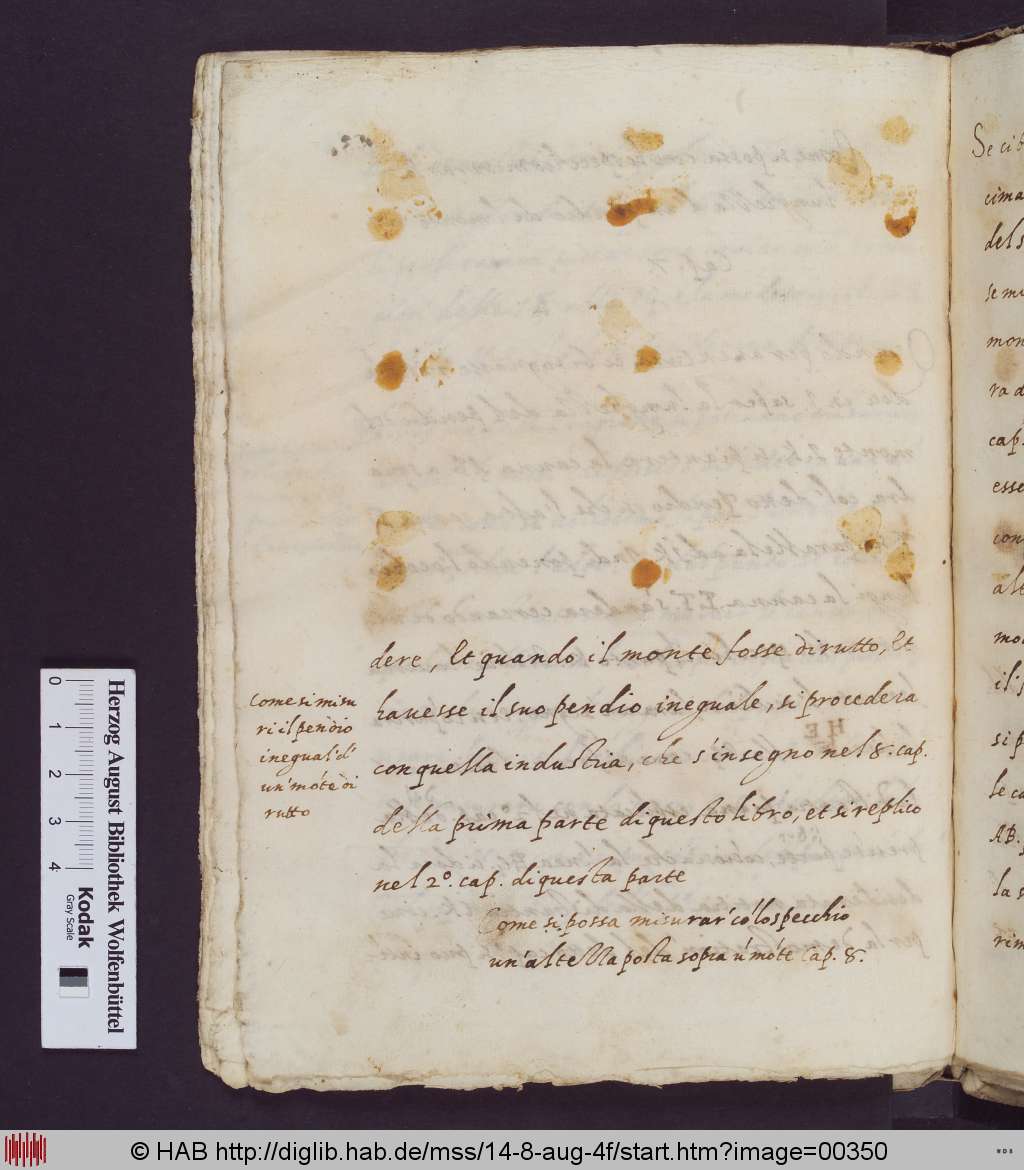 dere, Et quando il monte fosse dirutto, Et
hauesse il suo pendio ineguale, si procedera
con quella industria, che s'insegno nel 8. cap.
della prima parte di questo libro, et si replico
nel 2º. cap. di questa parte
Come si misu
ri il pendio
inegual' d'
un' móte di
rutto
Come si possa misurar' có lo specchio
un' altella posta sopra ú móte Cap. 8.
Se ci
cima
del s
se mi
mon
ra d
cap.
esse
con
alt
mo
il s
si p
le ca
AB.
la s
rim
0 1 2 3 4
Herzog August Bibliothek Wolfenbüttel
Kodak
Gray Scale
© HAB http://diglib.hab.de/mss/14-8-aug-4f/start.htm?image=00350